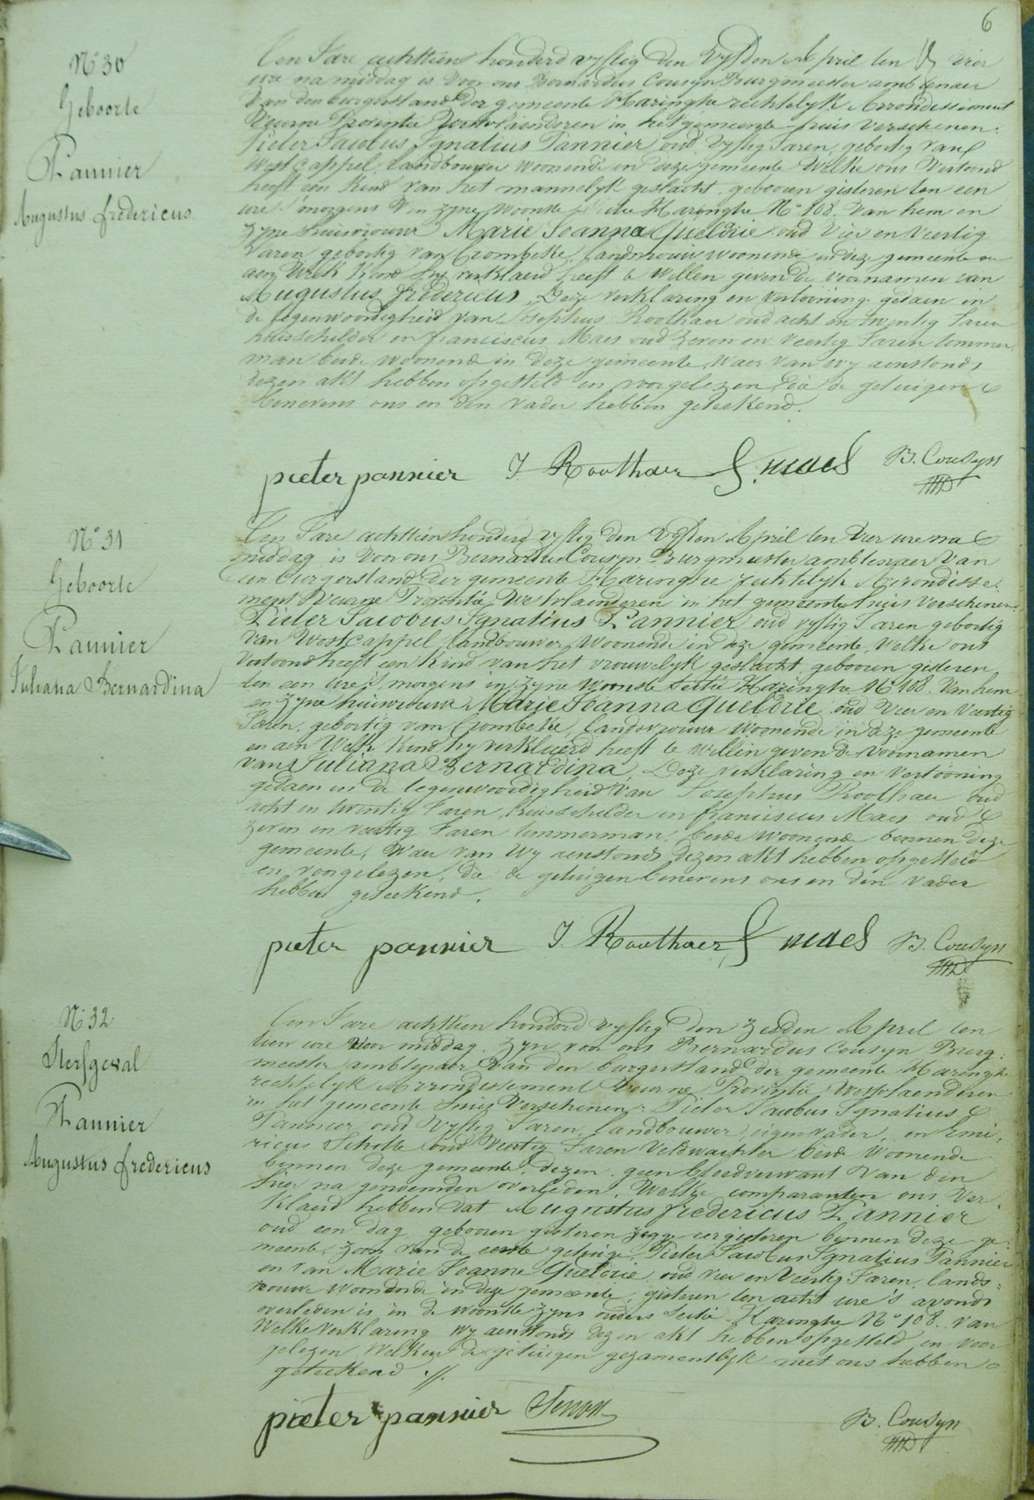 6
N° 30
Geboorte
Pannier
Augustus fredericus
Een Jare achttiens honderd vyftig den vyfden April ten vier
ure na middag is voor ons Bernardus Cousyn Burgmeester ambtenaer
van den burgerstand der gemeente Haringhe rechtelyk Arrondissement
Veurne Provintie Westvlaenderen in het gemeente huis verschenen
Pieter Jacobus Ignatius Pannier oud vyftig Jaren, gebortig van
West Cappel, landbouwer woonende in deze gemeente welke ons vertoond
heeft een kind van het mannelyk geslacht, gebooren gisteren ten een
ure 's morgens in zyne woonste sectie Haringhe N° 108. van hem en
zyne huisvrouw Marie Jeanna Queldrie oud vier en veertig
Jaren gebortig van Crombeke, landsvrouw woonende in deze gemeente en
aen welk kind hy verklaerd heeft te willen geven de voornamen van
Augustus fredericus, Deze verklaring en vertooning gedaen in
de tegenwoordigheid van Josephus Roothaer oud acht en twintig Jaren
huisschilder en franciscus Maes oud zeven en veertig Jaren timmer
man beide woonend in deze gemeente, Waer van wy aenstonds
dezen akt hebben opgesteld en voorgelezen, die de getuigen
benevens ons en den vader hebben geteekend.
pieter pannier J Roothaer f. maes B. Cousyn
N° 31
Geboorte
Pannier
Juliana Bernardina
Een Jare achttienshonderd vyftig den vyfden April ten vier ure na
middag is voor ons Bernardus Cousyn Burgmeester ambtenaer van
den burgerstand der gemeente Haringhe rechtelyk Arrondisse-
ment Veurne Provintie Westvlaenderen in het gemeente huis verschenen
Pieter Jacobus Ignatius Pannier oud vyftig Jaren gebortig
van West Cappel, landbouwer, woonende in deze gemeente, welke ons
vertoond heeft een kind van het vrouwelyk geslacht, gebooren gisteren
ten een ure 's morgens in zyne woonste sectie Haringhe N° 108. van hem
en zyne huisvrouw Marie Jeanna Queldrie oud vier en veertig
Jaren, gebortig van Crombeke, landsvrouw woonende in deze gemeente
en aen welk kind hy verklaerd heeft te willen geven de voornamen
van Juliana Bernardina, Deze verklaring en vertooning
gedaen in de tegenwoordigheid van Josephus Roothaer oud
acht en twintig Jaren, huisschilder en franciscus Maes oud
zeven en veertig Jaren timmerman, beide woonend binnen deze
gemeente, Waer van wy aenstonds dezen akt hebben opgesteld
en voorgelezen, die de getuigen benevens ons en den vader
hebben geteekend.
pieter pannier J. Roothaer f maes B. Cousyn
N° 32
Sterfgeval
Pannier
Augustus fredericus
Een Jare achttien honderd vyftig den zesden April ten
tien ure voor middag, zyn voor ons Bernardus Cousyn Burg-
meester ambtenaer van den burgerstand der gemeente Haringhe
rechtelyk Arrondissement Veurne, Provintie Westvlaenderen
in het gemeente huis verschenen Pieter Jacobus Ignatius
Pannier oud vyftig Jaren, landbouwer, eigen vader, en Eme-
ricus Scholte oud veertig Jaren Veldwachter beide woonende
binnen deze gemeente, dezen geen bloedverwant van den
hier na genoemden overleden, Welke comparanten ons ver-
klaerd hebben dat Augustus fredericus Pannier
oud een dag gebooren gisteren zegge eergisteren binnen deze ge-
meente, zoon van de eerste getuige Pieter Jacobus Ignatius Pannier
en van Marie Jeanne Queldrie, oud vier en veertig Jaren, lands-
vrouw woonende in deze gemeente, gisteren ten acht ure 's avonds
overleden is in de woonste zyns ouders sectie Haringhe N° 108. van
Welke verklaring wy aenstonds dezen akt hebben opgesteld en voor
gelezen, welken de getuigen gezamentlyk met ons hebben
geteekend //.
pieter pannier B. Cousyn